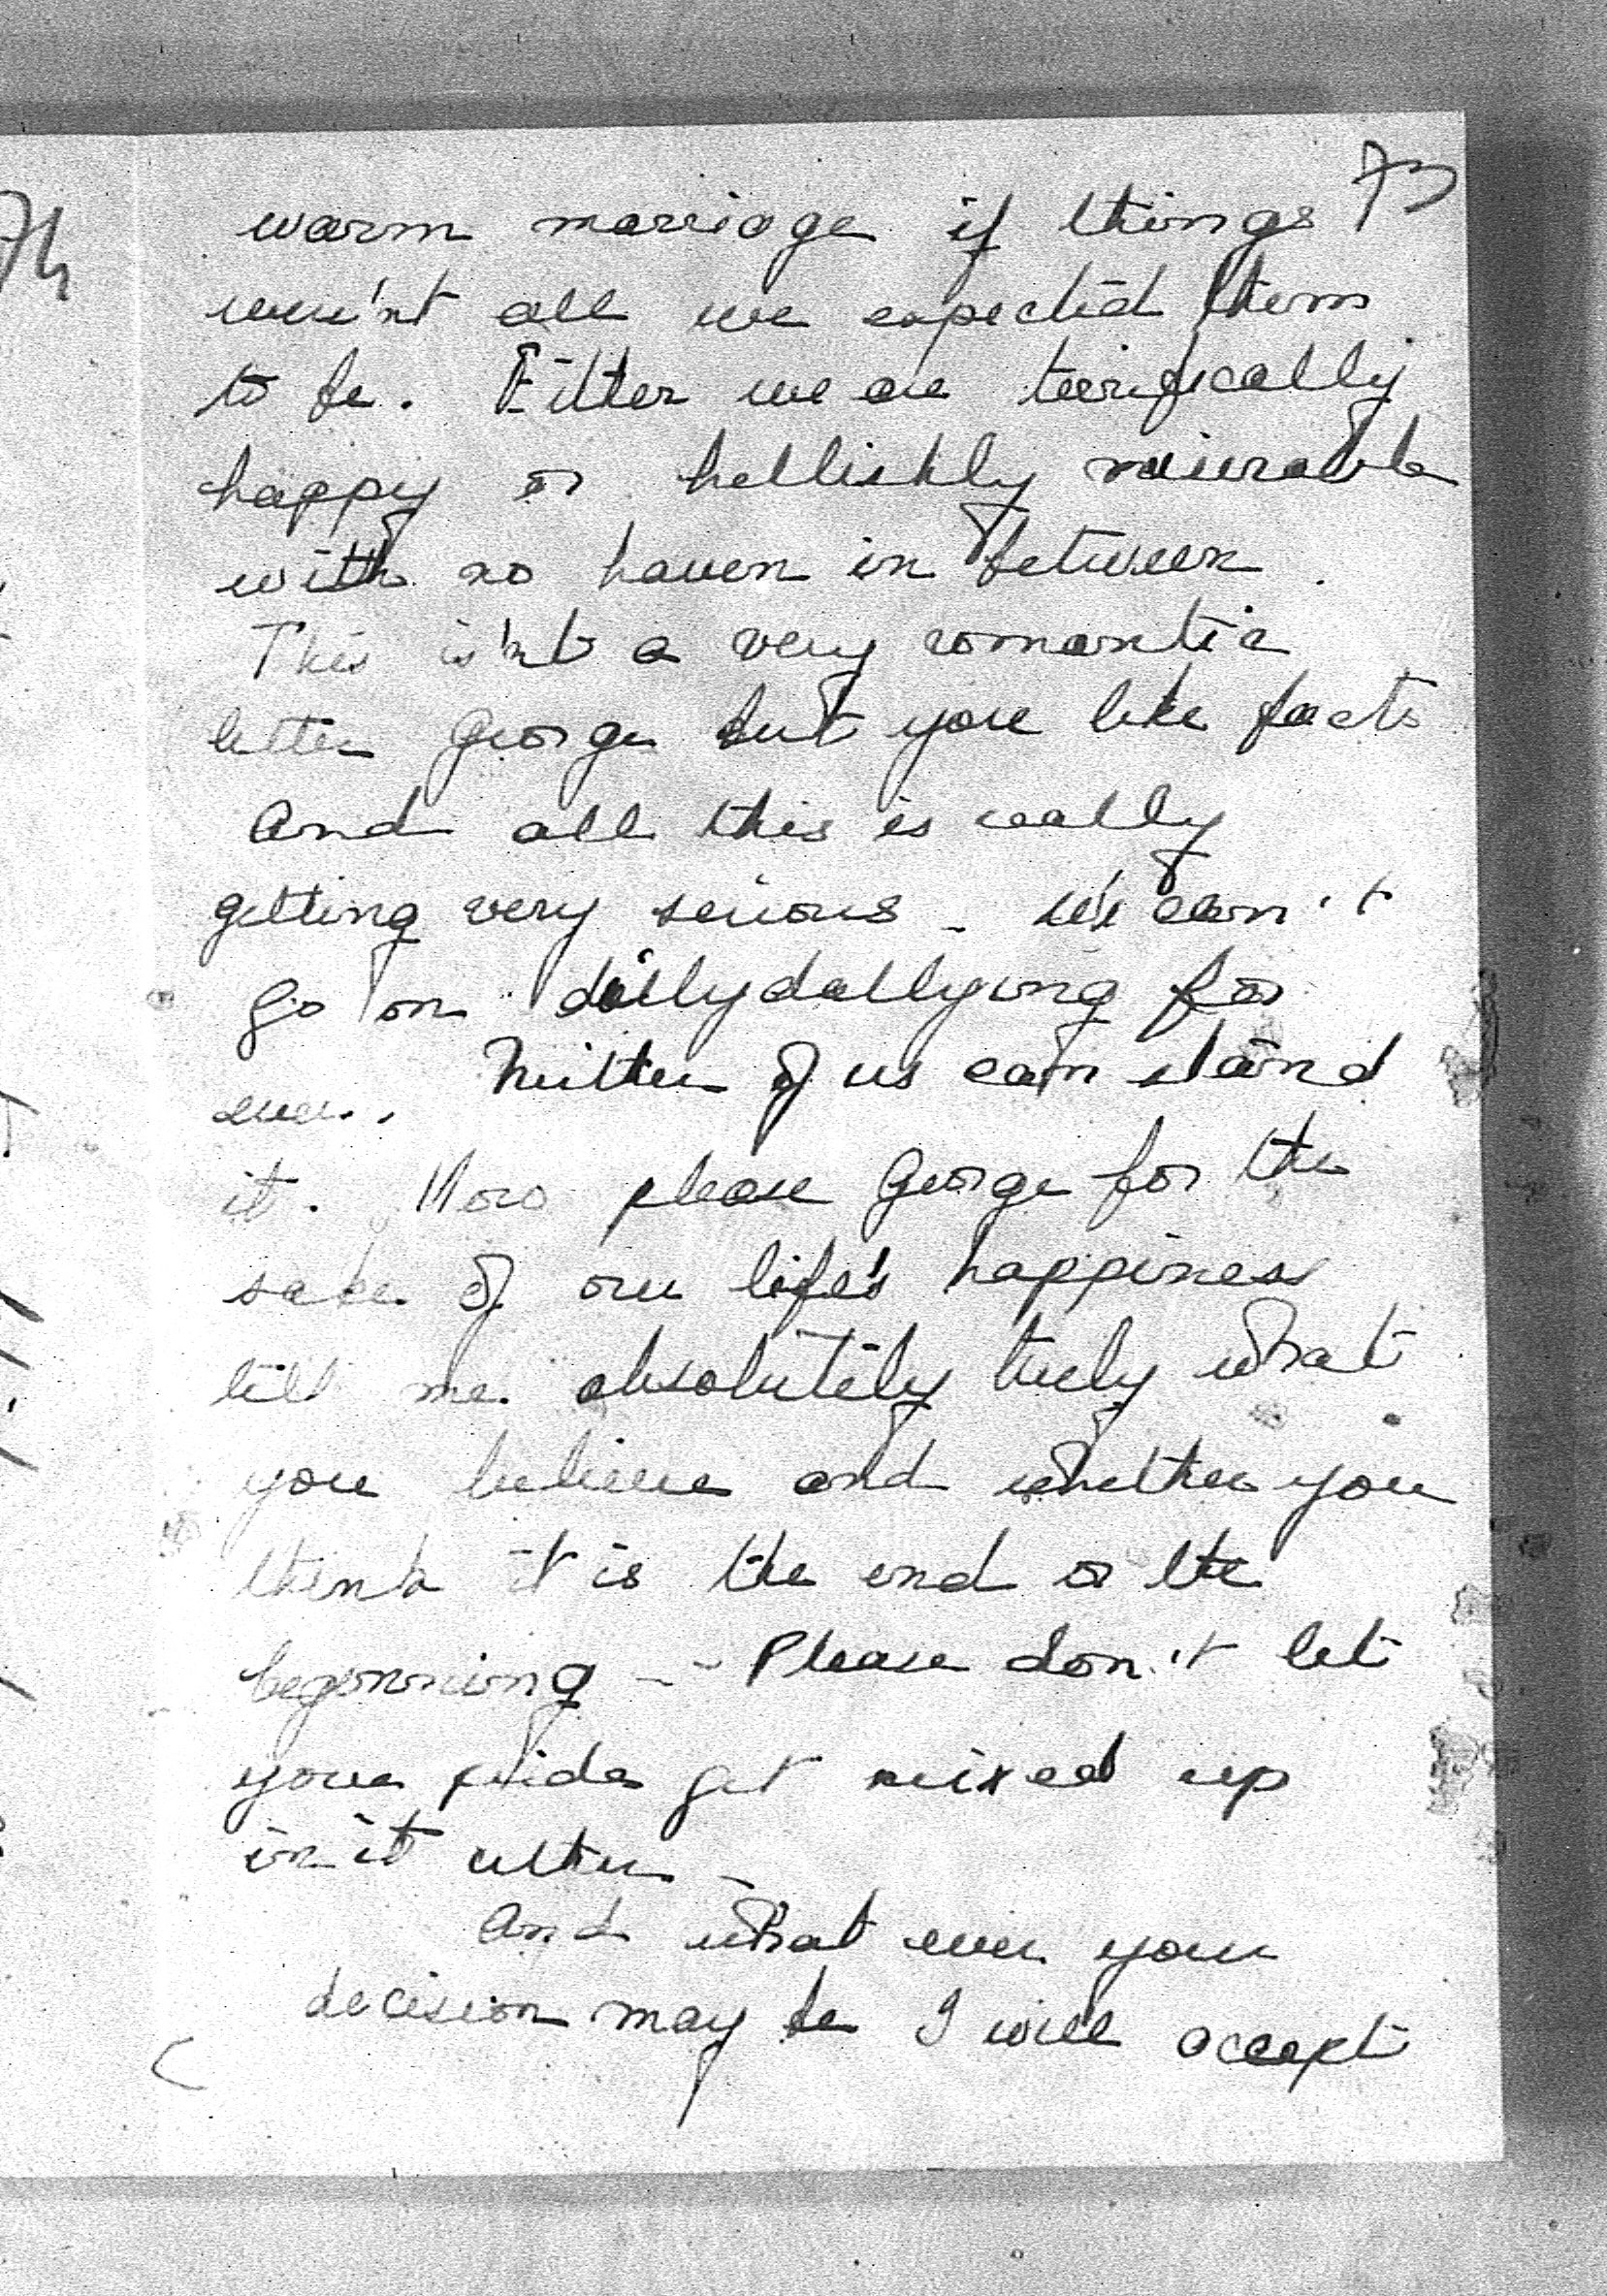 73
warm marriage if things
were'nt all we expected them
to be. Either we are terrifically
happy or hellishly miserable
with no haven in between.
This is'nt a very romantic
letter George but you like facts
And all this is really
getting very serious - We can't
go on dillydallying for
ever. Neither of us can stand
it. Now please George for the
sake of our life's happiness
tell me absolutely truly what
you believe and whether you
think it is the end or the
beginning -- Please don't let
your pride get mixed up
in it either -
And what ever your
decision may be I will accept